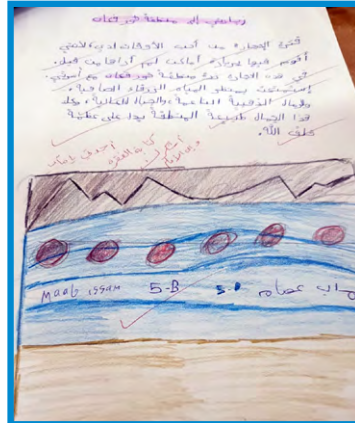 رحلتي إلى منطقة خور فكان
فترة الإجازة من أحب الأوقات لدي، لأنني
أقوم فيها بزيارة أماكن لم أزرها من قبل.
في هذه الإجازة زرت منطقة خور فكان مع أسرتي.
استمتعت بمنظر المياه الزرقاء الصافية،
والرمال الذهبية الناعمة، والجبال العالية، وكل
هذا الجمال لطبيعة المنطقة يدل على عظمة
خلق الله.
Maab issam 5-B عصام